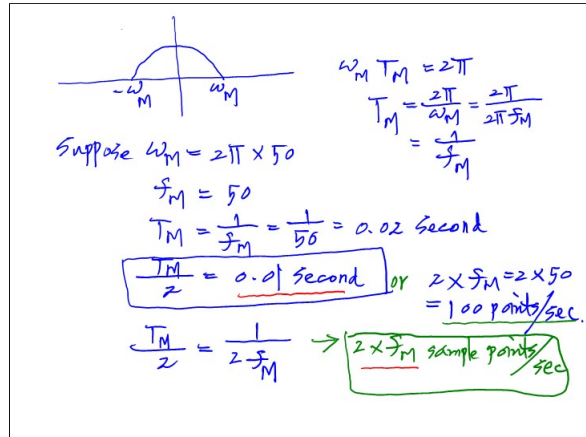 -ω_M ω_M
ω_M T_M = 2π
T_M = 2π/ω_M = 2π/2πf_M
= 1/f_M
Suppose ω_M = 2π × 50
f_M = 50
T_M = 1/f_M = 1/50 = 0.02 second
T_M/2 = 0.01 second or 2 × f_M = 2 × 50
= 100 points/sec.
T_M/2 = 1/2f_M → 2 × f_M sample points/sec